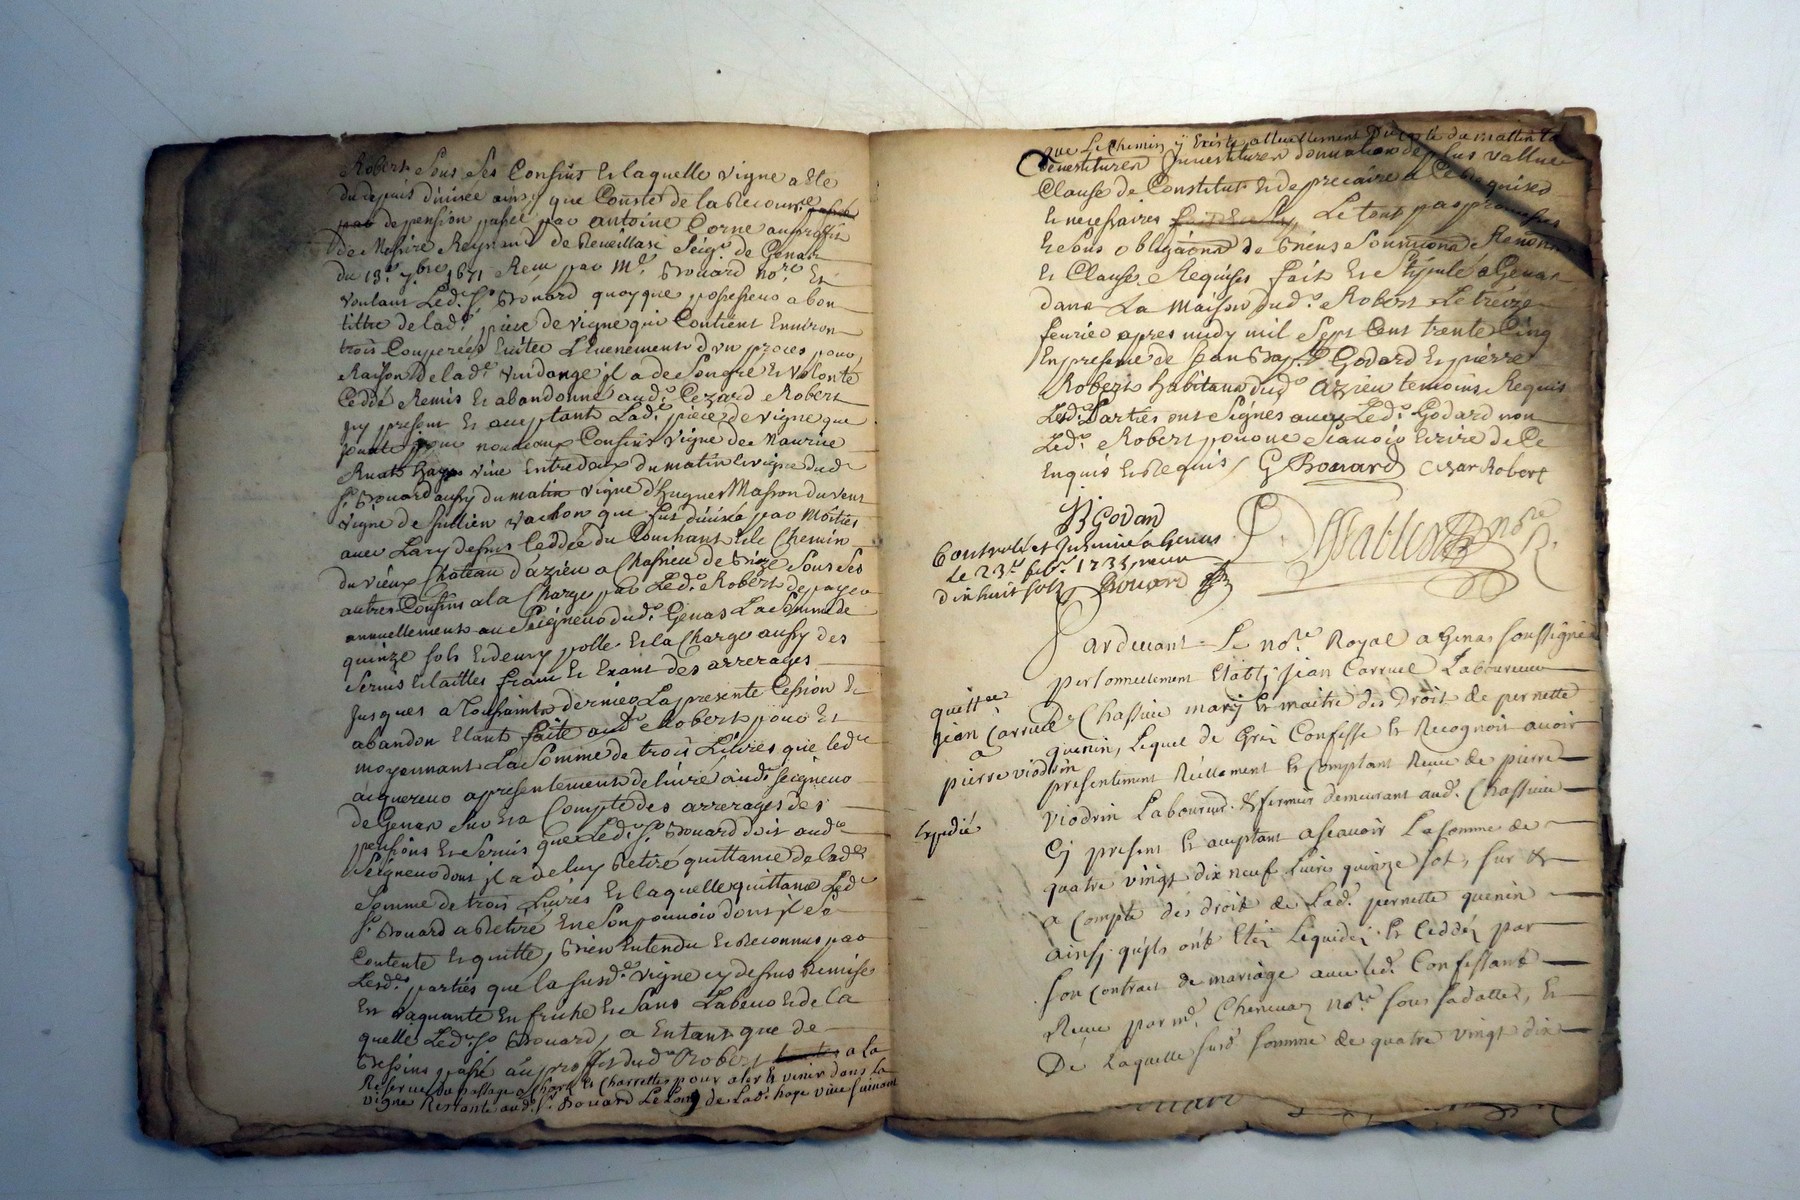 Robert sous ses Confins Et laquelle vigne a Ete
du depuis divisée ainsy que Conste de la Reconn.ce passée
par de pension passée par antoine Corne au proffit
de Messire Reymond de Seig.r de Genas
du 13.e 7.bre 1671 Receu par M.e Brouard no.re Et
voulant Led. S.r Brouard quoyque possesseur a bon
tittre de lad.e piece de vigne qui Contient Environ
trois Couperées Eviter L'Evenement d'un proces pour
Raison de lad.e vendange il a de Son gré Et volonté
Cedde Remis Et abandonné aud. Cezard Robert
icy present Et acceptant Lad.e piece de vigne que
pour nouveaux Confins vigne de Maurice
haye vive Entredeux du matin la vigne dud.
S.r Brouard aussy du matin vigne d'hugues Masson du vent
vigne de Jullien que fut divisée par Moitiés
avec Lary dessus Ceddée du Couchant Et le Chemin
du vieux Chateau d'azieu a Chassieu de bize Sous Ses
autres Confins a la Charge par Led. Robert de payer
annuellement au Seigneur dud. Genas La Somme de
quinze sols Et demy polle Et la Charge aussy des
Servis Et tailles franc Et Exant des arrerages
Jusques a Toussaints dernier La presente Cession Et
abandon Etant faite aud. Robert pour Et
moyennant La Somme de trois Livres que led.
acquereur a presentement delivré aud. seigneur
de Genas Sur Et a Compte des arrerages des
pensions Et Servis que Led. S.r Brouard doit aud.
Seigneur dont il a de luy Retiré quittance de lad.e
Somme de trois Livres Et laquelle quittance Led.
S.r Brouard a Retiré En Son pouvoir dont il Se
Contente Et quitte, bien Entendu Et Reconnus par
Lesd.es parties que la susd.e vigne cy dessus Remise
Est vaquante En friche Et Sans Labeur Et de la
quelle Led. S.r Brouard, a Entant que de
Besoins passé au proffit dud. Robert a la
Reserve du passage a Chars Et Charrettes pour aler Et venir dans la
vigne Restante aud. S.r Brouard Le Long de Lad. haye vive suivant
que Le Chemin y Existe actuellement Du coté du mattin
devestitures Investitures donnation de plus vallue
Clause de Constitut Et de precaire a Ce Requises
Et necessaires Le tout par promesses
Et Sous obligaons de biens Soumissions Renon.ons
Et Clauses Requises fait Et Stipulé a Genas
dans La Maison dud. Robert Le treize
fevrier apres midy mil Sept Cent trente Cinq
En presence de Godard Et pierre
Robert habitans dud. azieu temoins Requis
Lesd. Parties ont Signes avec Led. Godard non
Led. Robert pour ne Scavoir Ecrire de Ce
Enquis Et Requis / G Brouard Cezar Robert
Godard
no.re R.
Controllé et Insinué a Genas
Le 23.e feb.r 1735 receu
dix huit sols Brouard
Pardevant Le no.re Royal a Genas soussigné
personnellement Etably Jean Carruel Laboureur
De Chassieu mary Et maitre des Droit de pernette
quenin, Lequel de Gré Confesse Et Recognoit avoir
presentement Réellement Et comptant Receu de pierre
viodrin Laboureur Et fermier demeurant aud. Chassieu
Cy present Et acceptant ascavoir La somme de
quatre vingt dix neuf Livre quinze sol, sur &
a compte des droit de Lad. pernette quenin
ainsy qu'ils ont Etez Liquidez Et Ceddéz par
son contrat de mariage avec led. Confessant
Receu par m.e no.re sous sa datte, Et
De Laquelle susd. somme de quatre vingt dix
quittce
Jean Carruel
a
pierre viodrin
Expedié